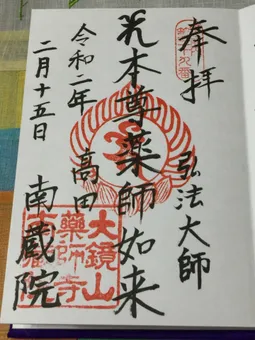 奉拝
弘法大師
本尊薬師如来
令和二年
高田
二月十五日
南蔵院
大鏡山
薬師寺
南蔵院